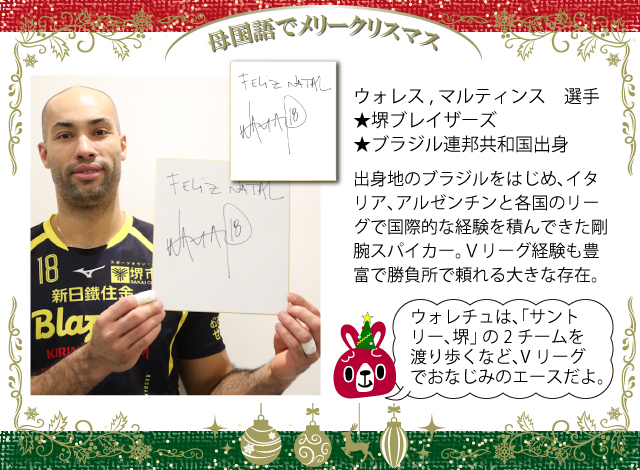 母国語でメリークリスマス
FELIZ NATAL
18
ウォレス , マルティンス　選手
★堺ブレイザーズ
★ブラジル連邦共和国出身
出身地のブラジルをはじめ、イタ
リア、アルゼンチンと各国のリー
グで国際的な経験を積んできた剛
腕スパイカー。Vリーグ経験も豊
富で勝負所で頼れる大きな存在。
FELIZ NATAL
18
18
MIZUNO
堺市
SAKAI
新日鐵住金
Blaz
KIRIN
ウォレチュは、「サント
リー、堺」の2チームを
渡り歩くなど、Vリーグ
でおなじみのエースだよ。